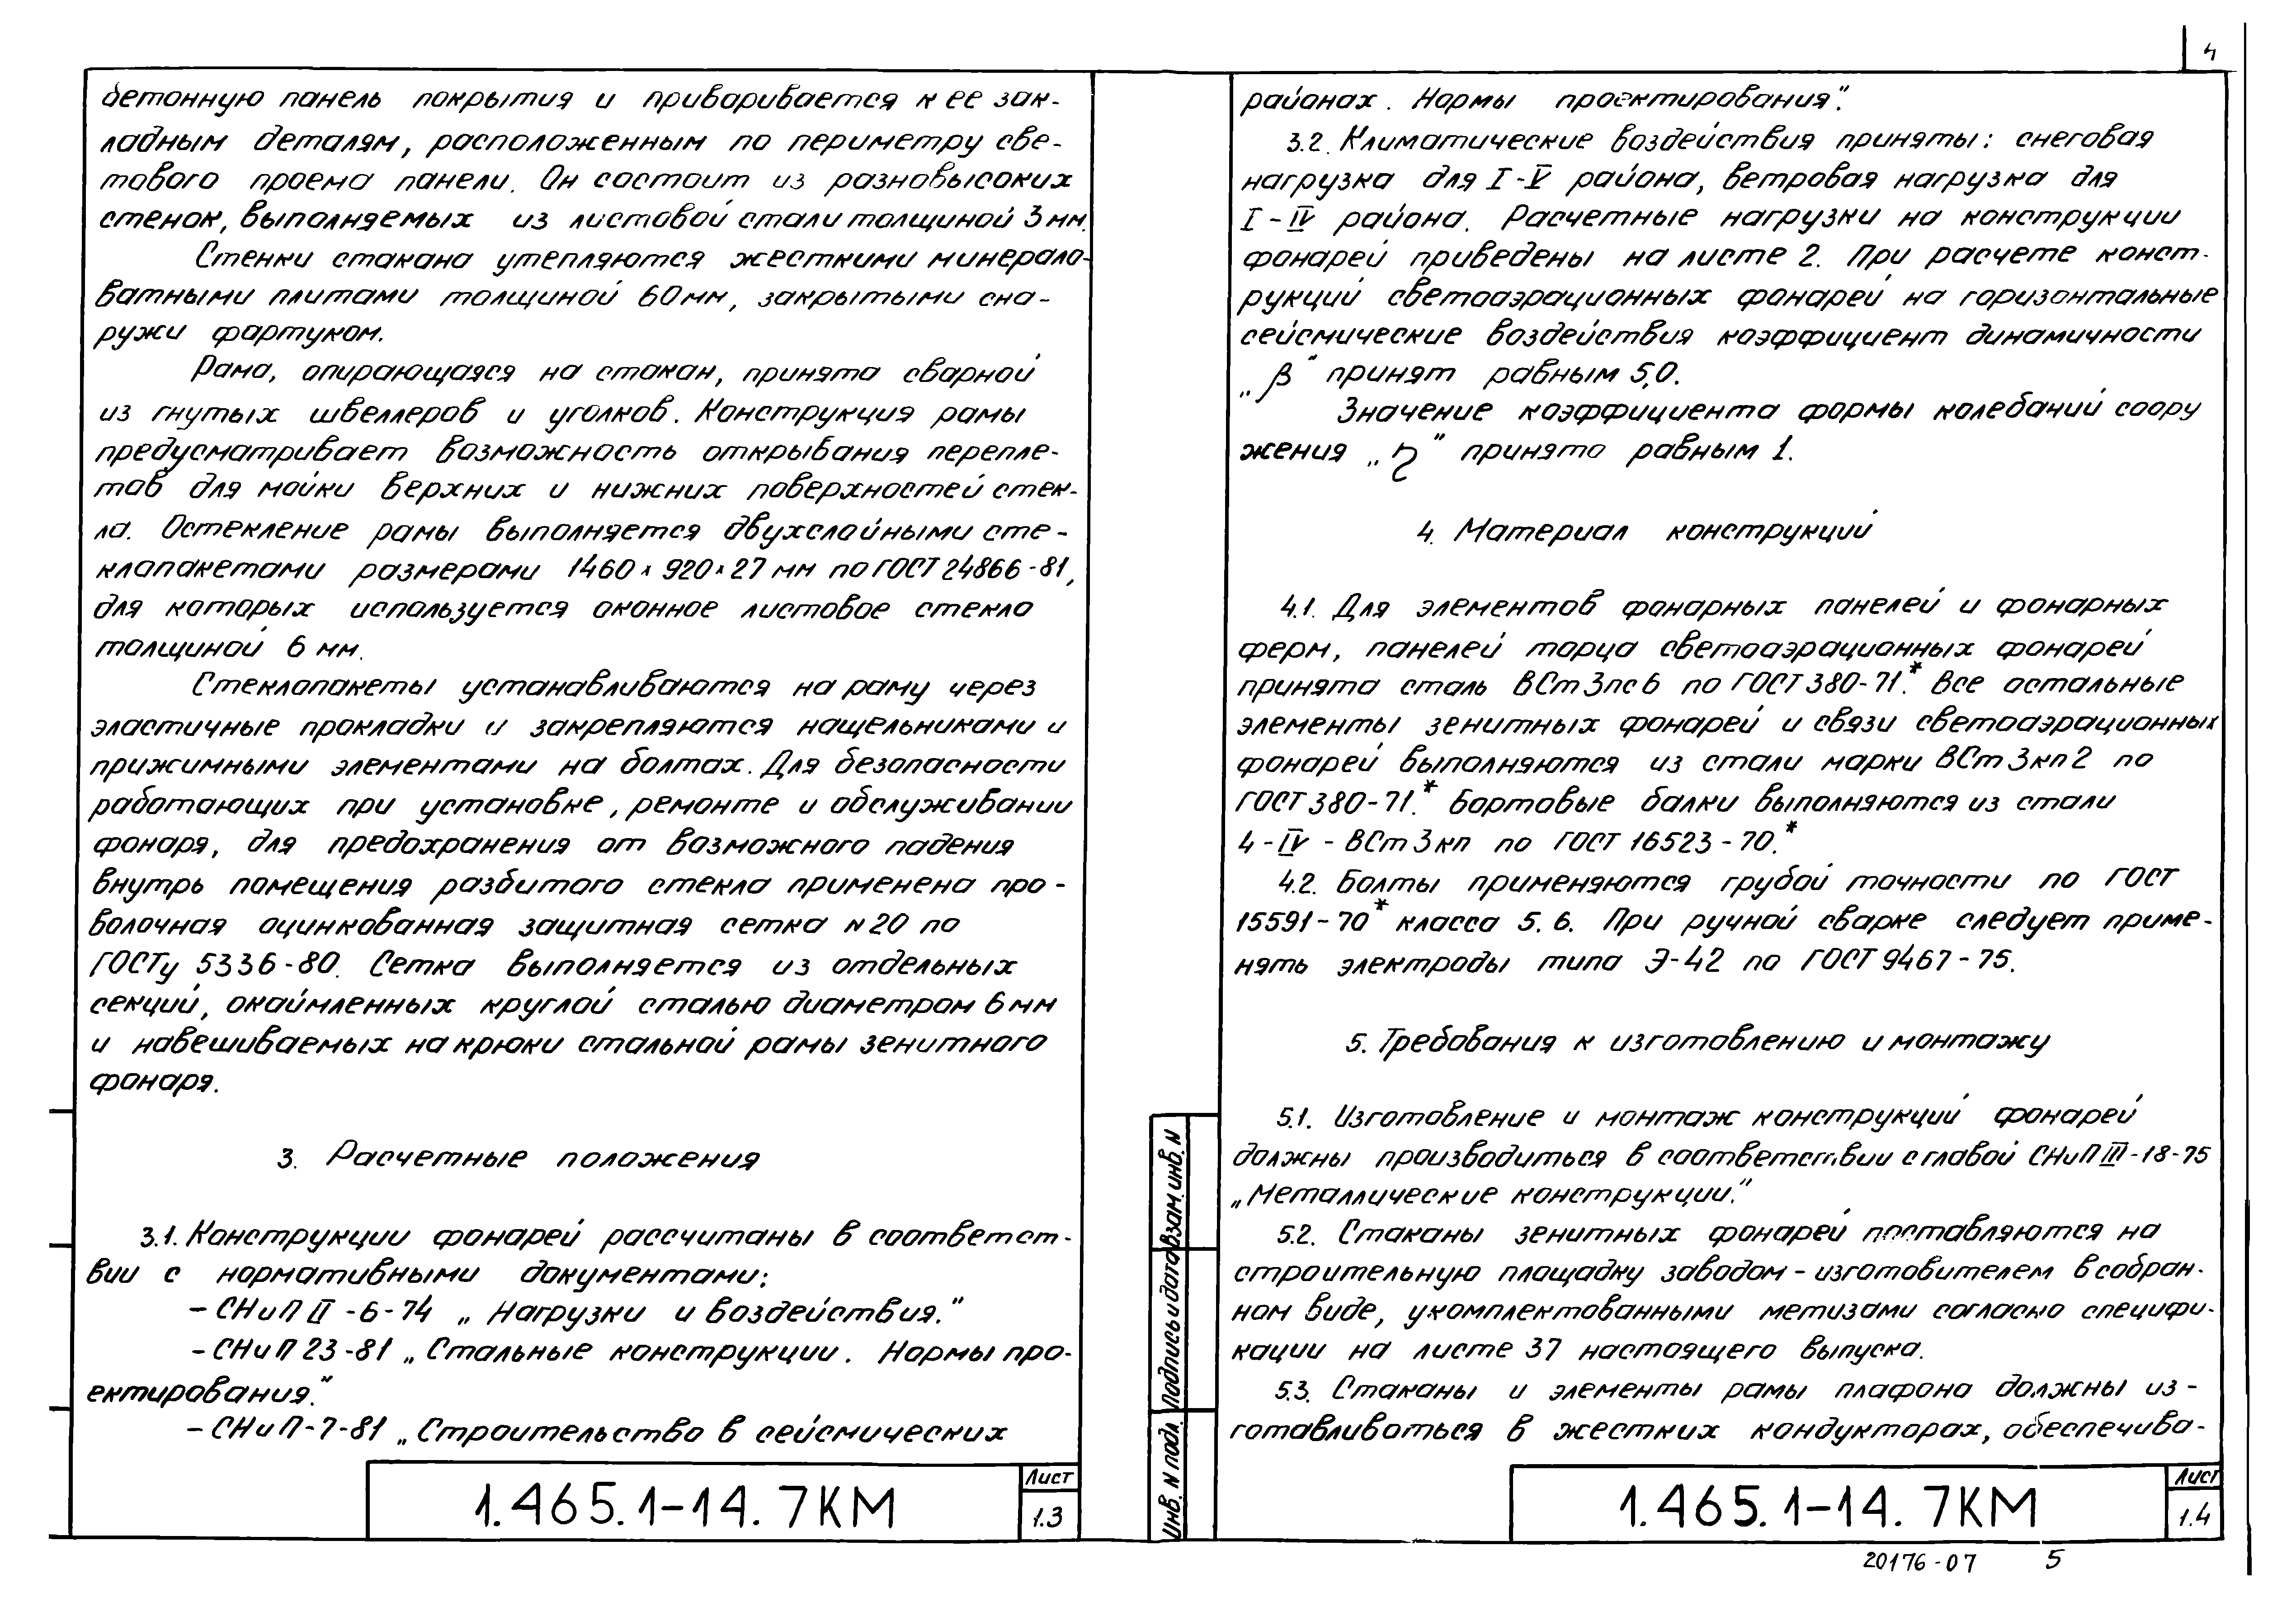 4
бетонную панель покрытия и приваривается к ее зак-
ладным деталям, расположенным по периметру све-
тового проема панели. Он состоит из разновысоких
стенок, выполняемых из листовой стали толщиной 3 мм.
Стенки стакана утепляются жесткими минерало-
ватными плитами толщиной 60 мм, закрытыми сна-
ружи фартуком.
Рама, опирающаяся на стакан, принята сварной
из гнутых швеллеров и уголков. Конструкция рамы
предусматривает возможность открывания перепле-
тов для мойки верхних и нижних поверхностей стек-
ла. Остекление рамы выполняется двухслойными сте-
клопакетами размерами 1460 х 920 х 27 мм по ГОСТ 24866-81,
для которых используется оконное листовое стекло
толщиной 6 мм.
Стеклопакеты устанавливаются на раму через
эластичные прокладки и закрепляются нащельниками и
прижимными элементами на болтах. Для безопасности
работающих при установке, ремонте и обслуживании
фонаря, для предохранения от возможного падения
внутрь помещения разбитого стекла применена про-
волочная оцинкованная защитная сетка N 20 по
ГОСТу 5336-80. Сетка выполняется из отдельных
секций, окаймленных круглой сталью диаметром 6 мм
и навешиваемых на крюки стальной рамы зенитного
фонаря.
3. Расчетные положения
3.1. Конструкции фонарей рассчитаны в соответст-
вии с нормативными документами:
– СНиП II-6-74 „Нагрузки и воздействия."
– СНиП 23-81 „Стальные конструкции. Нормы про-
ектирования."
– СНиП-7-81 „Строительство в сейсмических
1.465.1–14. 7КМ
Лист
1.3
районах. Нормы проектирования".
3.2. Климатические воздействия приняты: снеговая
нагрузка для I-V района, ветровая нагрузка для
I-IV района. Расчетные нагрузки на конструкции
фонарей приведены на листе 2. При расчете конст-
рукций светоаэрационных фонарей на горизонтальные
сейсмические воздействия коэффициент динамичности
„β" принят равным 5,0.
Значение коэффициента формы колебаний соору
жения „η" принято равным 1.
4. Материал конструкций
4.1. Для элементов фонарных панелей и фонарных
ферм, панелей торца светоаэрационных фонарей
принята сталь ВСт3пс6 по ГОСТ 380-71.* Все остальные
элементы зенитных фонарей и связи светоаэрационных
фонарей выполняются из стали марки ВСт3кп2 по
ГОСТ 380-71.* Бортовые балки выполняются из стали
4-IV-ВСт3кп по ГОСТ 16523-70.*
4.2. Болты применяются грубой точности по ГОСТ
15591-70* класса 5.6. При ручной сварке следует приме-
нять электроды типа Э-42 по ГОСТ 9467-75.
5. Требования к изготовлению и монтажу
5.1. Изготовление и монтаж конструкций фонарей
должны производиться в соответствии с главой СНиП III-18-75
„Металлические конструкции."
5.2. Стаканы зенитных фонарей поставляются на
строительную площадку заводом-изготовителем в собран-
ном виде, укомплектованными метизами согласно специфи-
кации на листе 37 настоящего выпуска.
5.3. Стаканы и элементы рамы плафона должны из-
готавливаться в жестких кондукторах, обеспечива-
Инв. N подл.
Подпись и дата
Взам. инв. N
1.465.1–14. 7КМ
Лист
1.4
20176-07 5